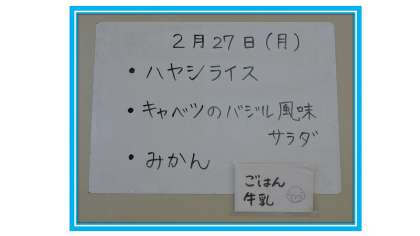 2月27日(月)
・ハヤシライス
・キャベツのバジル風味
サラダ
・みかん
ごはん
牛乳